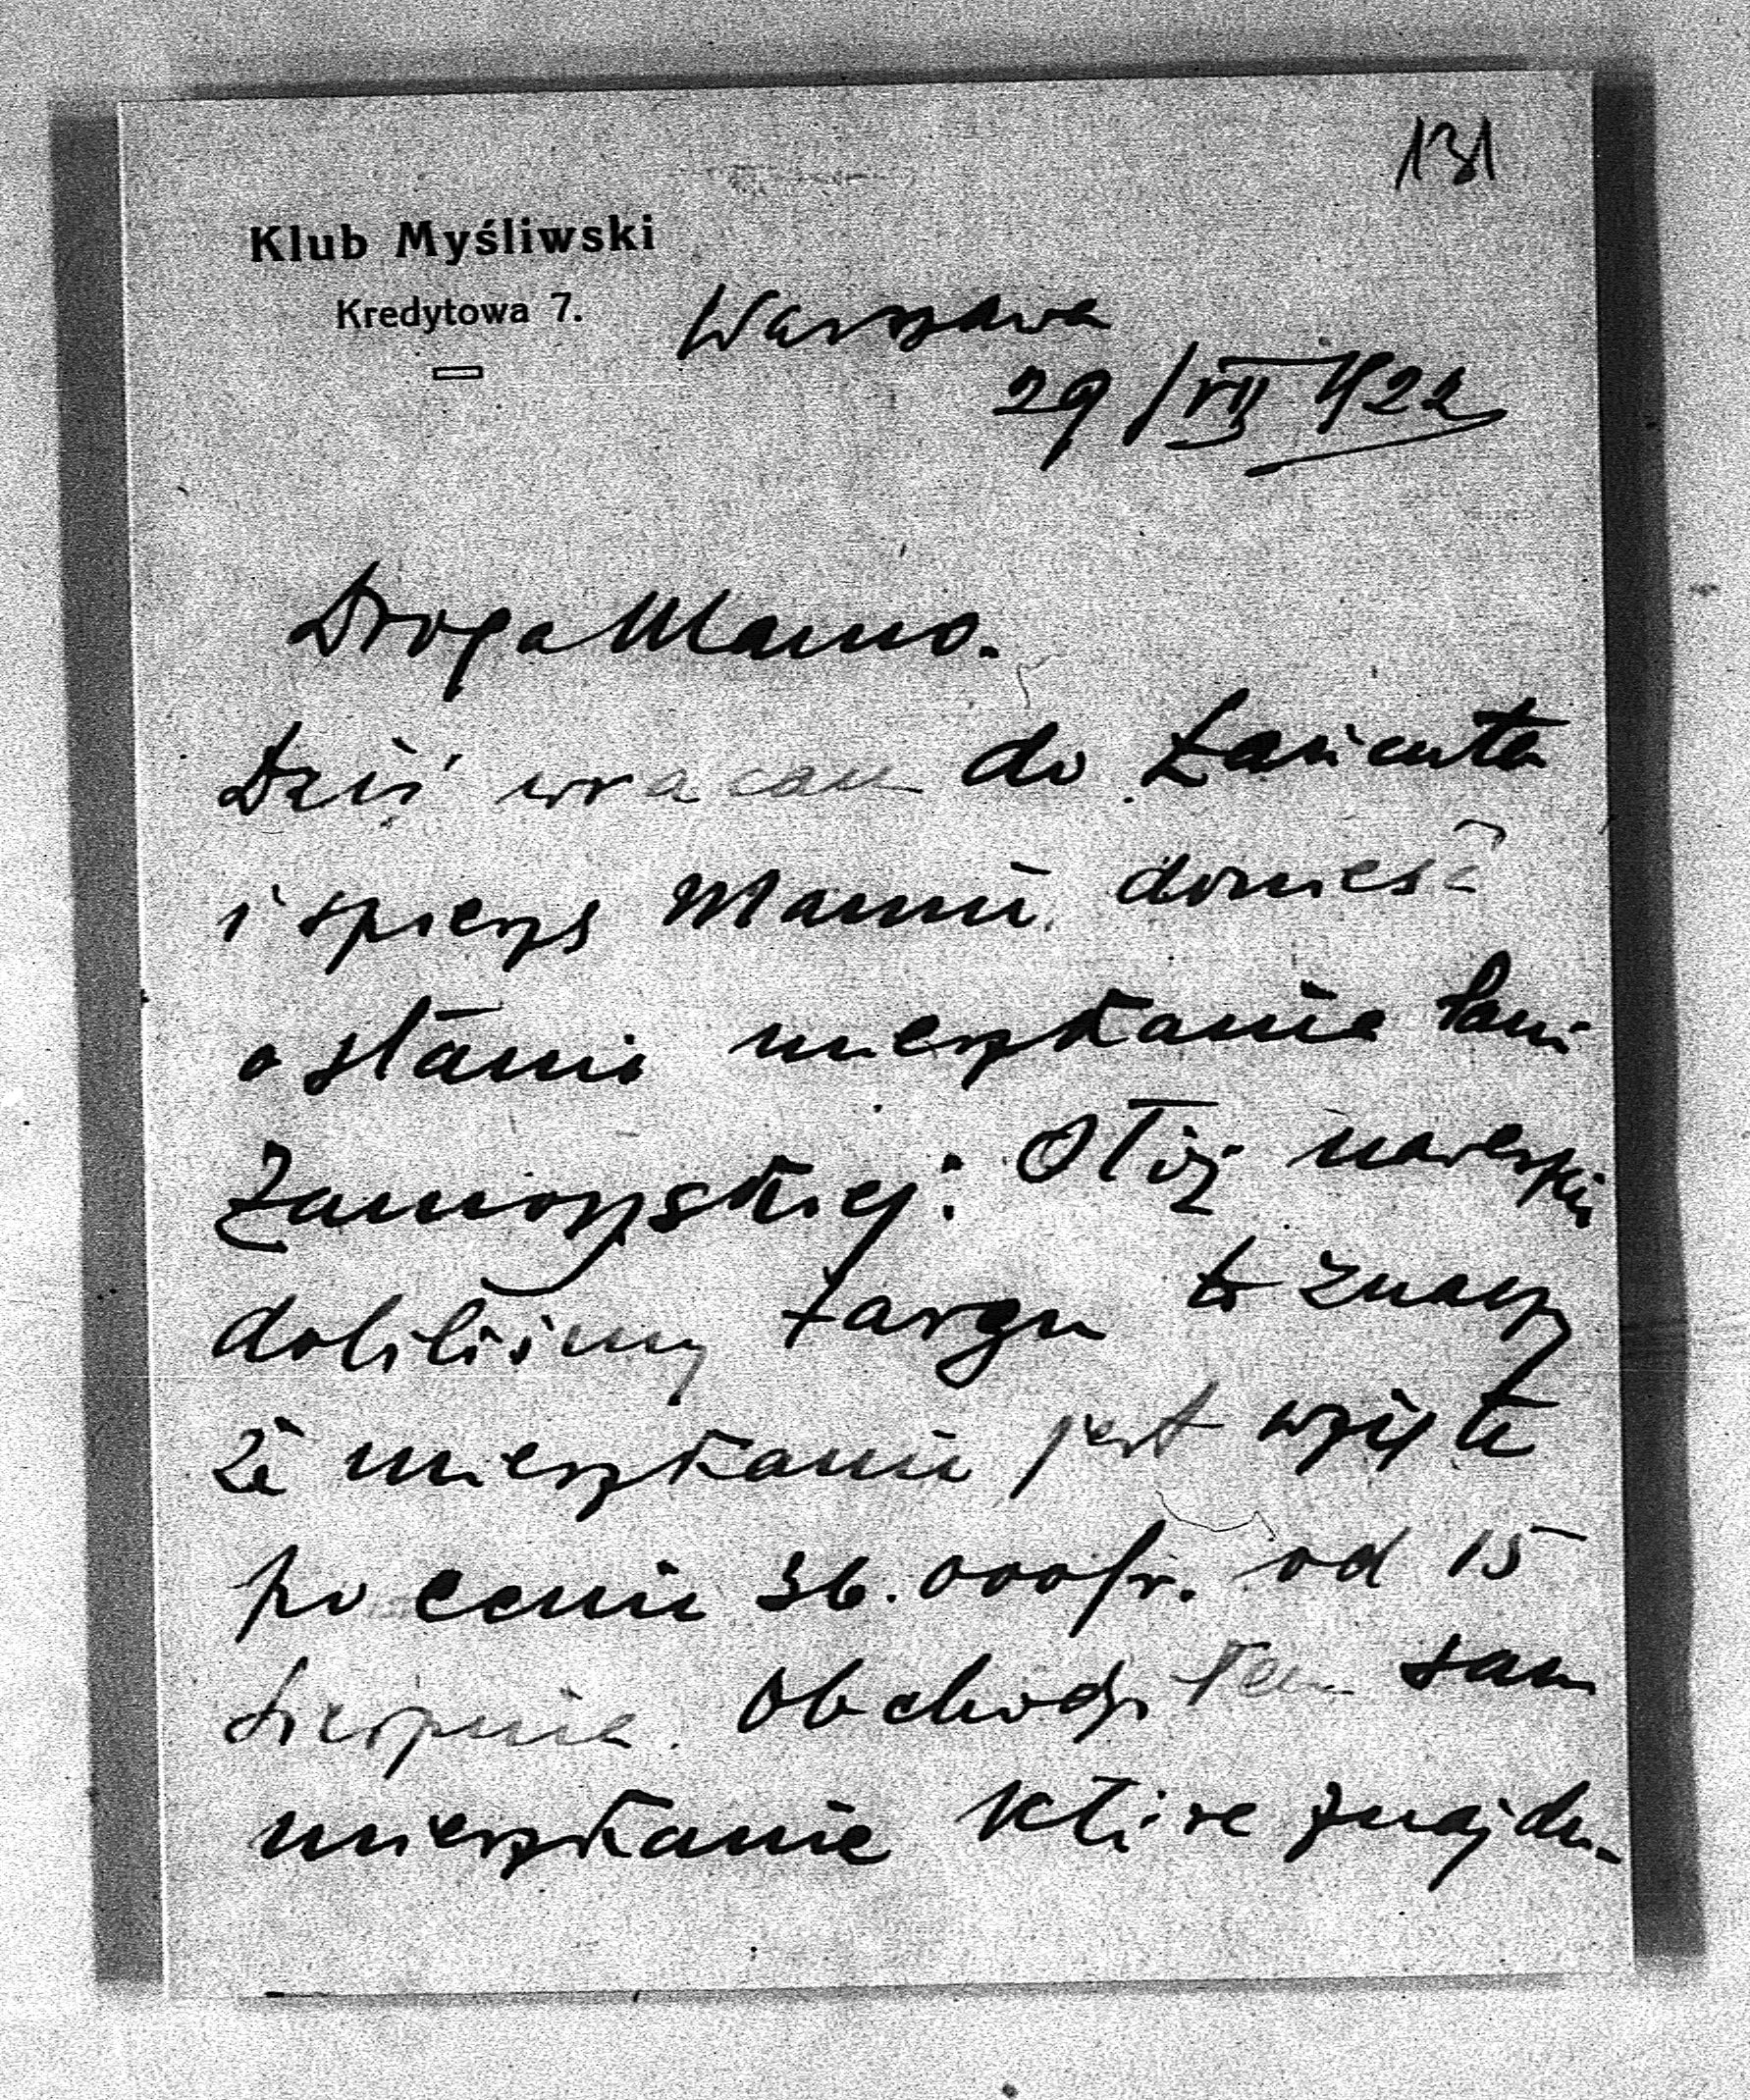 131
Klub Myśliwski
Kredytowa 7.
Warszawa
29/VII 1922
Droga Mamo.
Dziś wracam do Łańcuta
i spieszę Mamie donieść
o stanie mieszkania Pani
Zamoyskiej: Otóż nareszcie
dobiliśmy targu to znaczy
że mieszkanie jest wzięte
po cenie 36.000 fr. od 15
sierpnia. Obchodziłem sam
mieszkanie które znajdu-